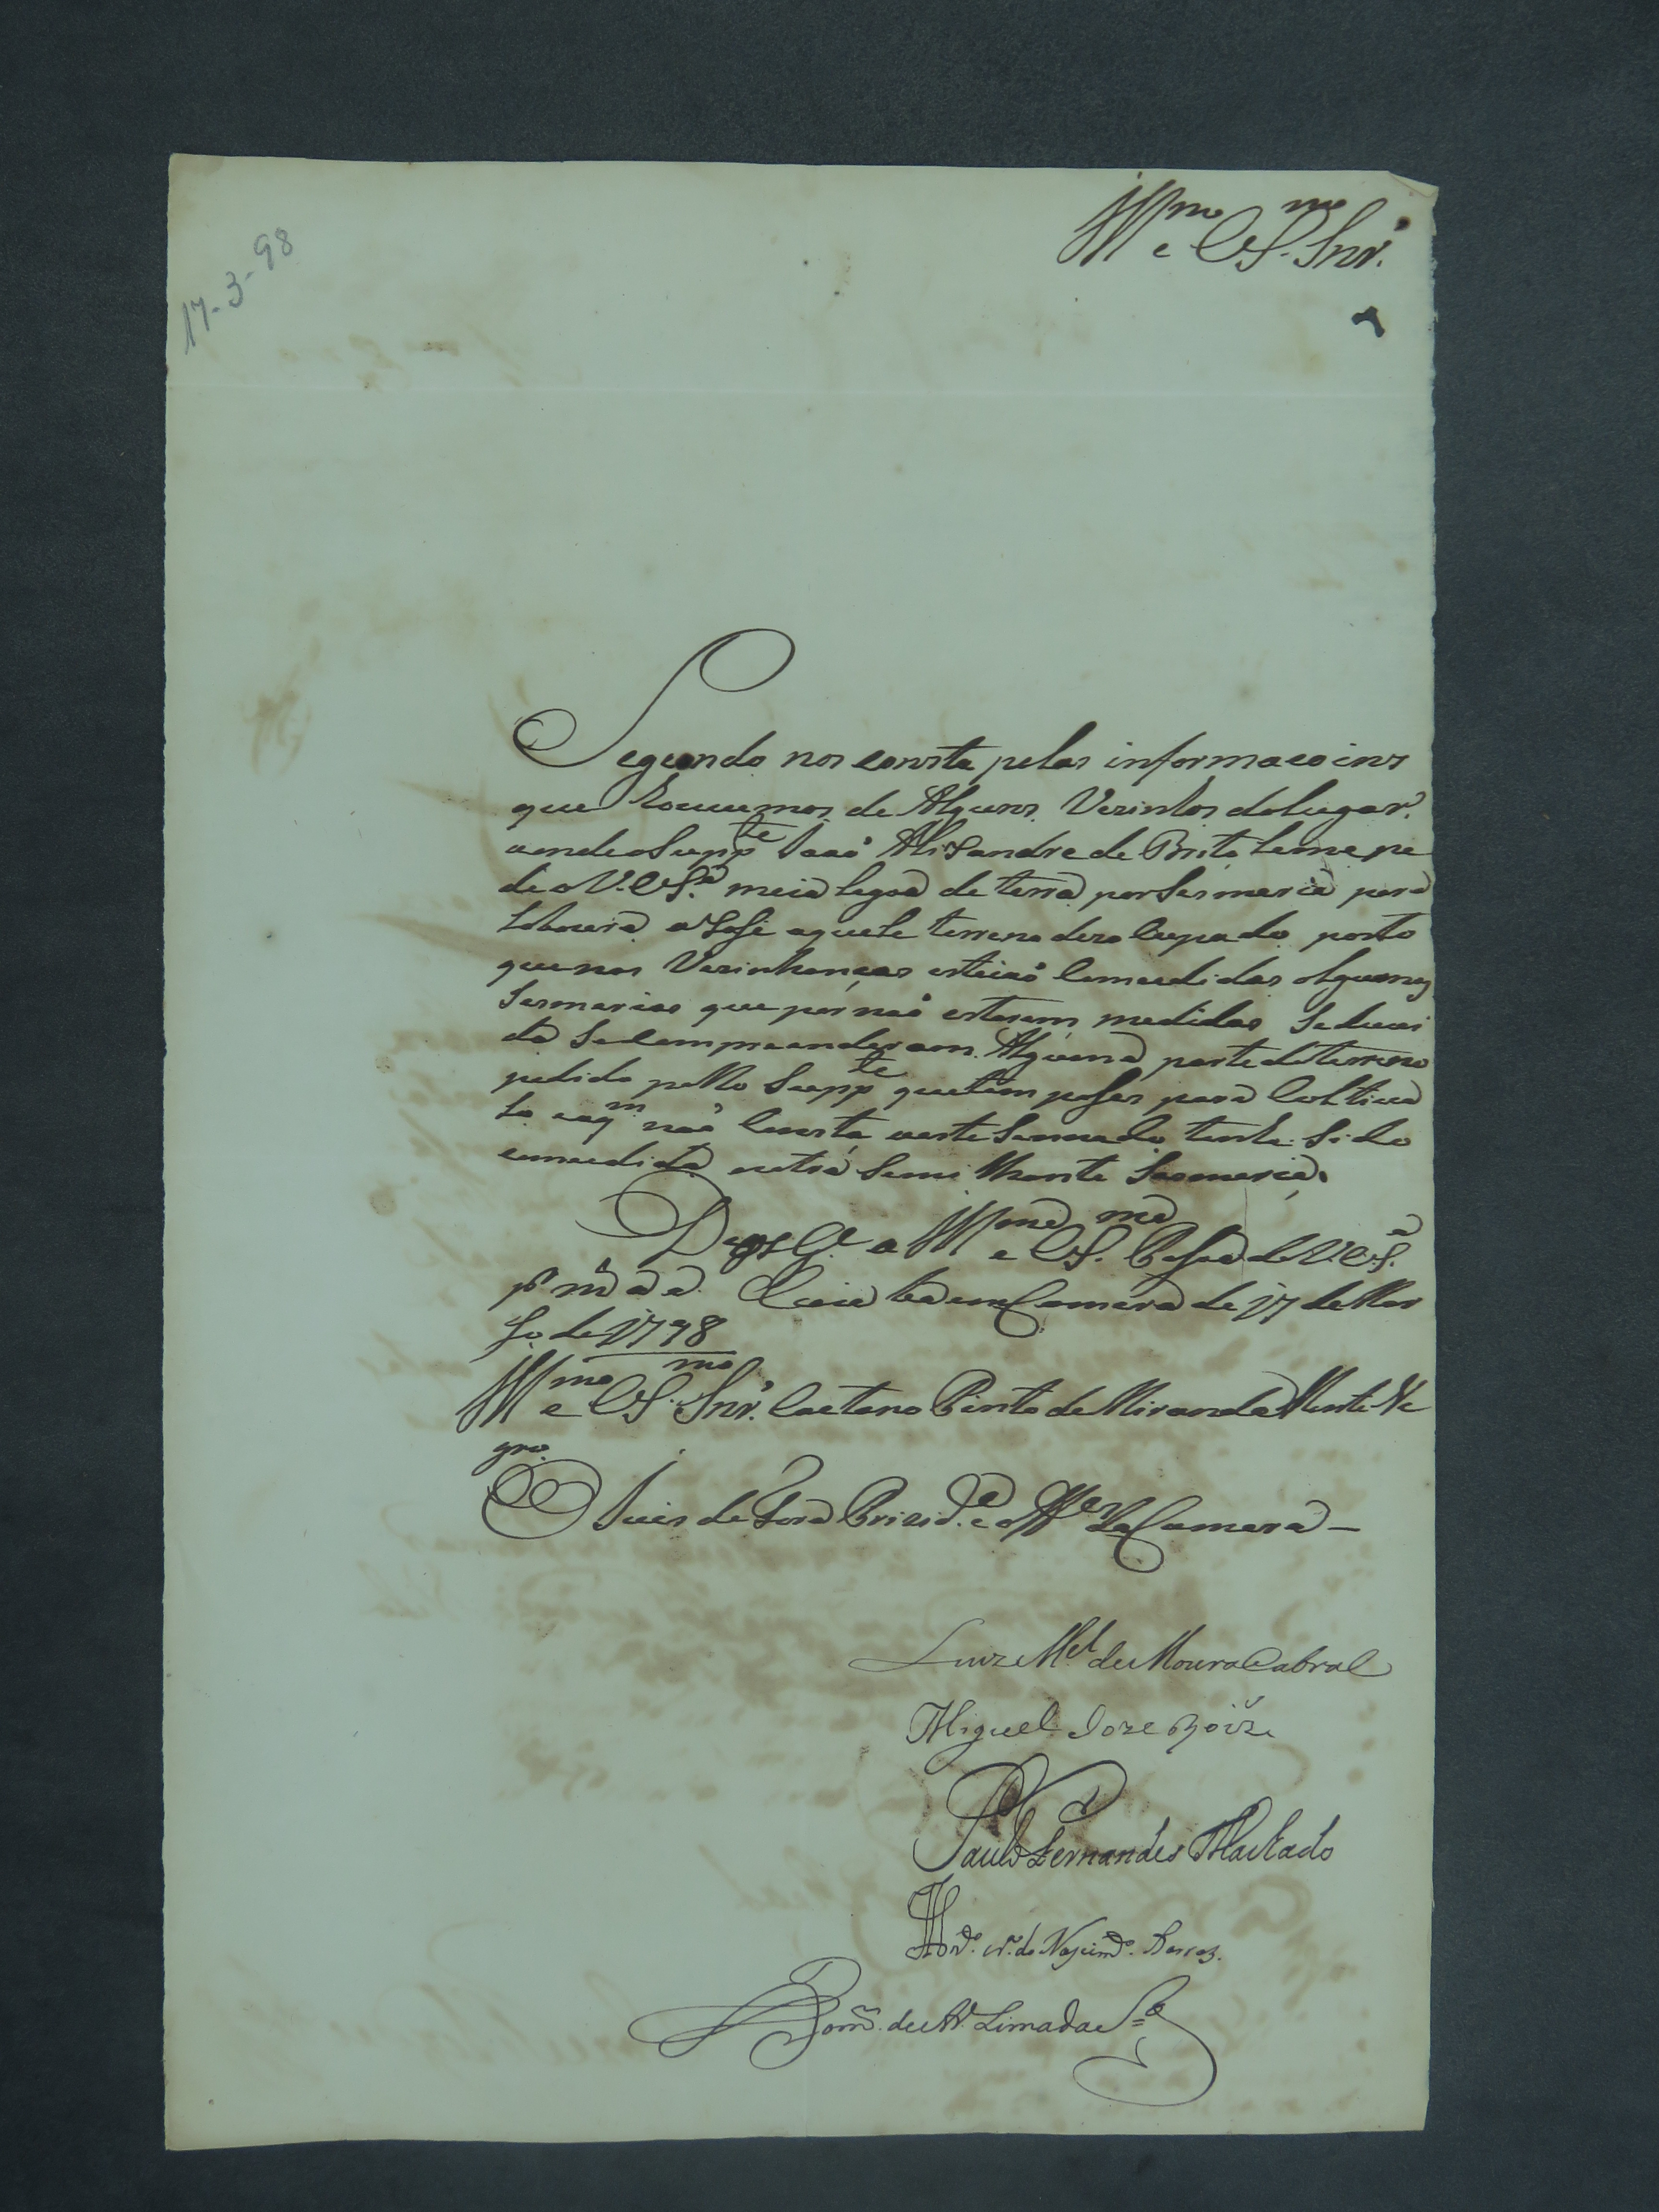 17-3-98
Ill.mo e Ex.mo Snr.
Segundo nos consta pelas informacoins
que houuemos de Alguns Vezinhos do lugar
aonde o Supp.te Joaõ Alixandre de Brito Leme pe
de a V. Ex.a meia legoa de terra por Sesmaria para
Laboura aSesi aquele terreno dezocupado posto
que nas Vezinhanças estejaõ Comcedidas algumas
Sesmarias que por naõ estarem medidas Seduui
da Se Compreanderam Alguma parte do terreno
pedido pello Supp.te que tem poses para Coltiua
lo e aq.m naõ Consta neste Sennado tenha Sido
comcedida outra Semilhante Sesmaria.
Deos G.e a Ill.ma e Ex.ma Pesoa de V. Ex.a
p.r m. a. a. Cuiaba em Camera de 17 de Mar
so de 1798
Ill.mo e Ex.mo Snr. Caetano Pinto de Miranda Monte Ne
gro.
O Juis de Fora Prizid.e e Off.es da Camera —
Luiz M.el de Moura Cabral
Miguel Joze Roiz
Paulo Fernandes Machado
do Nascim.to
Dom.os da Lima da S.a